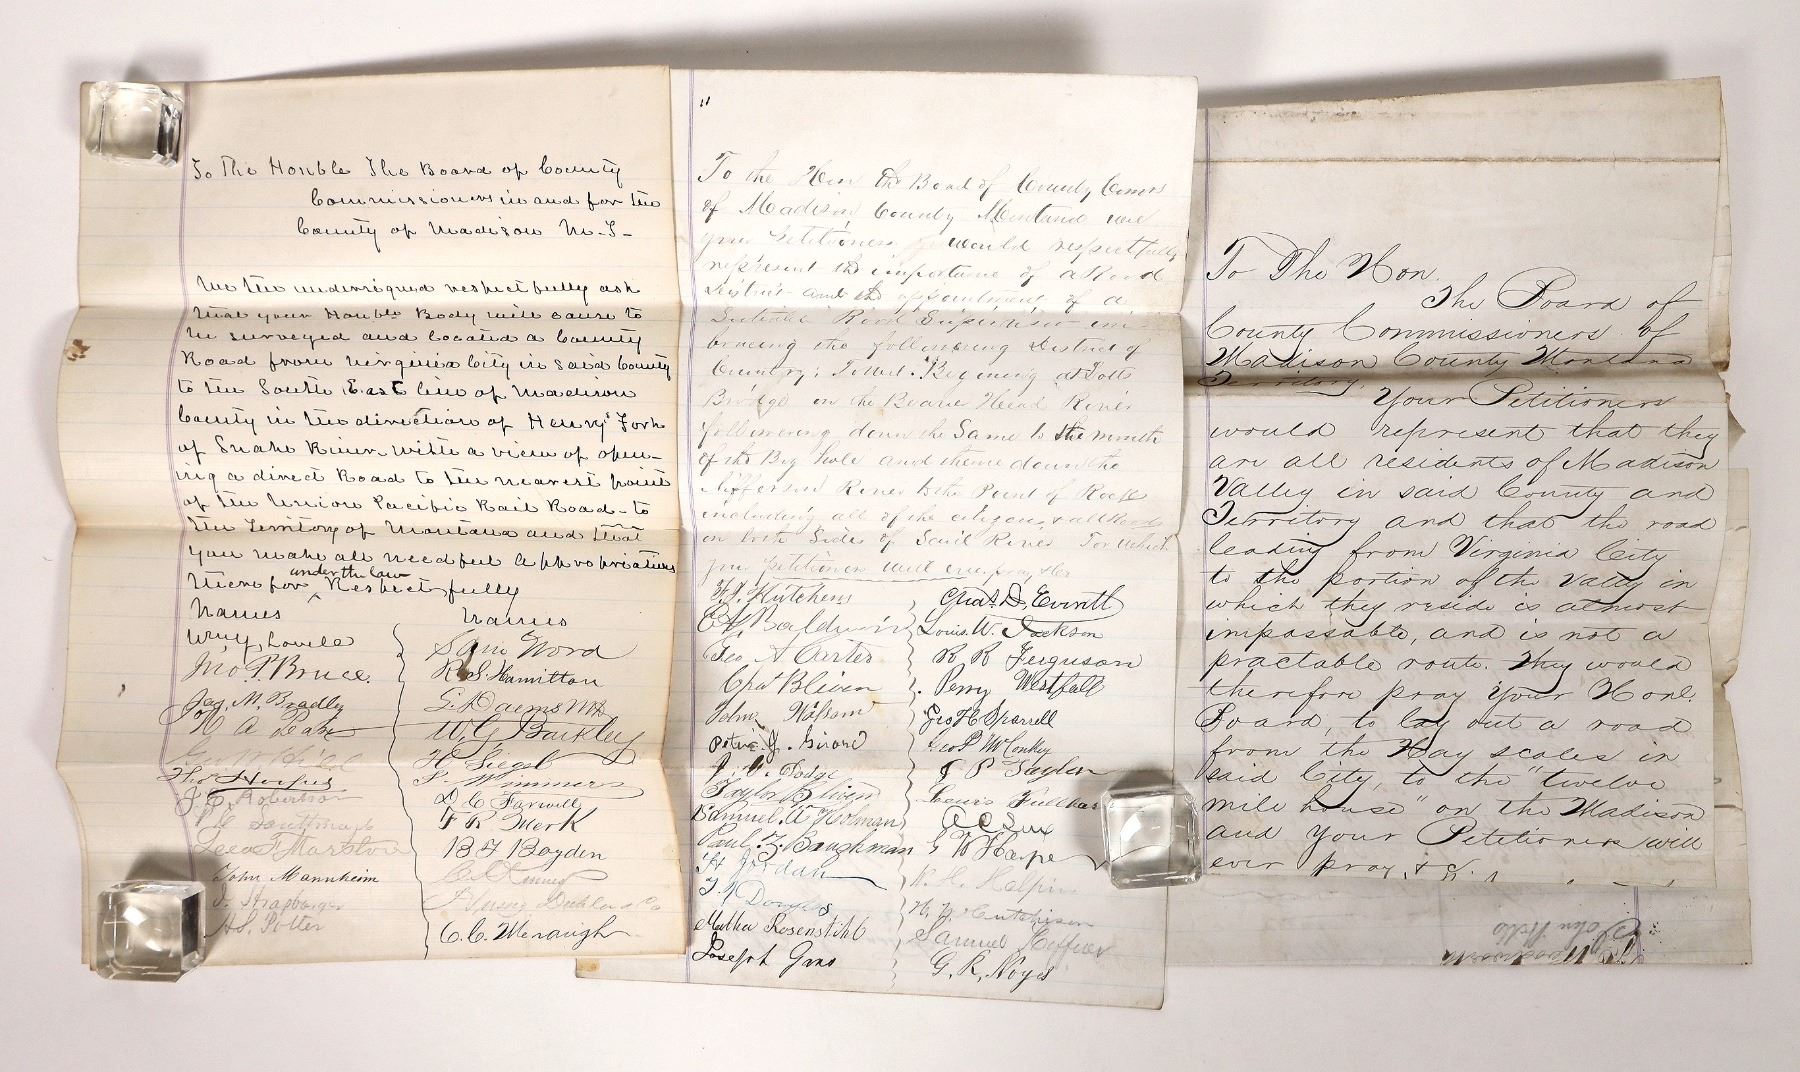 To The Honble The Board of County
Commissioners in and for the
County of Madison M. T-
We the undersigned respectfully ask
that your Honble Body will cause to
be surveyed and located a County
Road from Virginia City in said County
to the South East line of Madison
County in the direction of Henrys' Fork
of Snake River with a view of open-
ing a direct Road to the nearest point
of the Union Pacific Rail Road - to
the Territory of Montana and that
you make all needful appropriations
under the law
therefor ^ Respectfully
Names Names
Wm Y. Lovell Sam Word
Jno. P. Bruce. R. S. Hamilton
Jas. M. Bradley G. Daems MD
W. G. Barkley
H Siegel
Theo Hoopes S. Wimmers
J. C. Robertson D. C. Farwell
F R Merk
Marston B F Boyden
John Mannheim
J. Strasburger
H S. Potter C. C. Menaugh
"
To the Hon the Board of County Comrs
of Madison County Montana we
your Petitioners would respectfully
represent the importance of a Road
District and the appointment of a
Suitable Road Supervisor em-
bracing the following District of
Country: To wit: Begining at Toll
Bridge on the Beaver Head River
following down the Same to the mouth
of the Big hole and thence down the
Jefferson River to the Point of Rock
including all of the citizens & all Roads
on both Sides of Said River For which
your petitioners will ever pray &c
Hutchens Chas. D. Everett
Baldwin Louis. W. Jackson
Geo A Carter R R Ferguson
Chas Bliven Perry Westfall
John Geo H Sparrell
Peter J. Girard Geo P McConkey
Dodge J P Taylor
Taylor Bliven Lewis
Samuel A Holman
Paul. Z. Baughman G W Harpe
Jordan N. H. Halpin
Douglas Hutchison
Samuel
Joseph Gans G. R. Noyes
To The Hon.
The Board of
County Commissioners of
Madison County Montana
Territory.
Your Petitioners
would represent that they
are all residents of Madison
Valley in said County and
Territory and that the road
leading from Virginia City
to the portion of the valley in
which they reside is almost
impassable, and is not a
practable route. They would
therefore pray your Honl.
Board, to lay out a road
from the Hay scales in
said City, to the "twelve
mile house" on the Madison
and your Petitioners will
ever pray, &c.